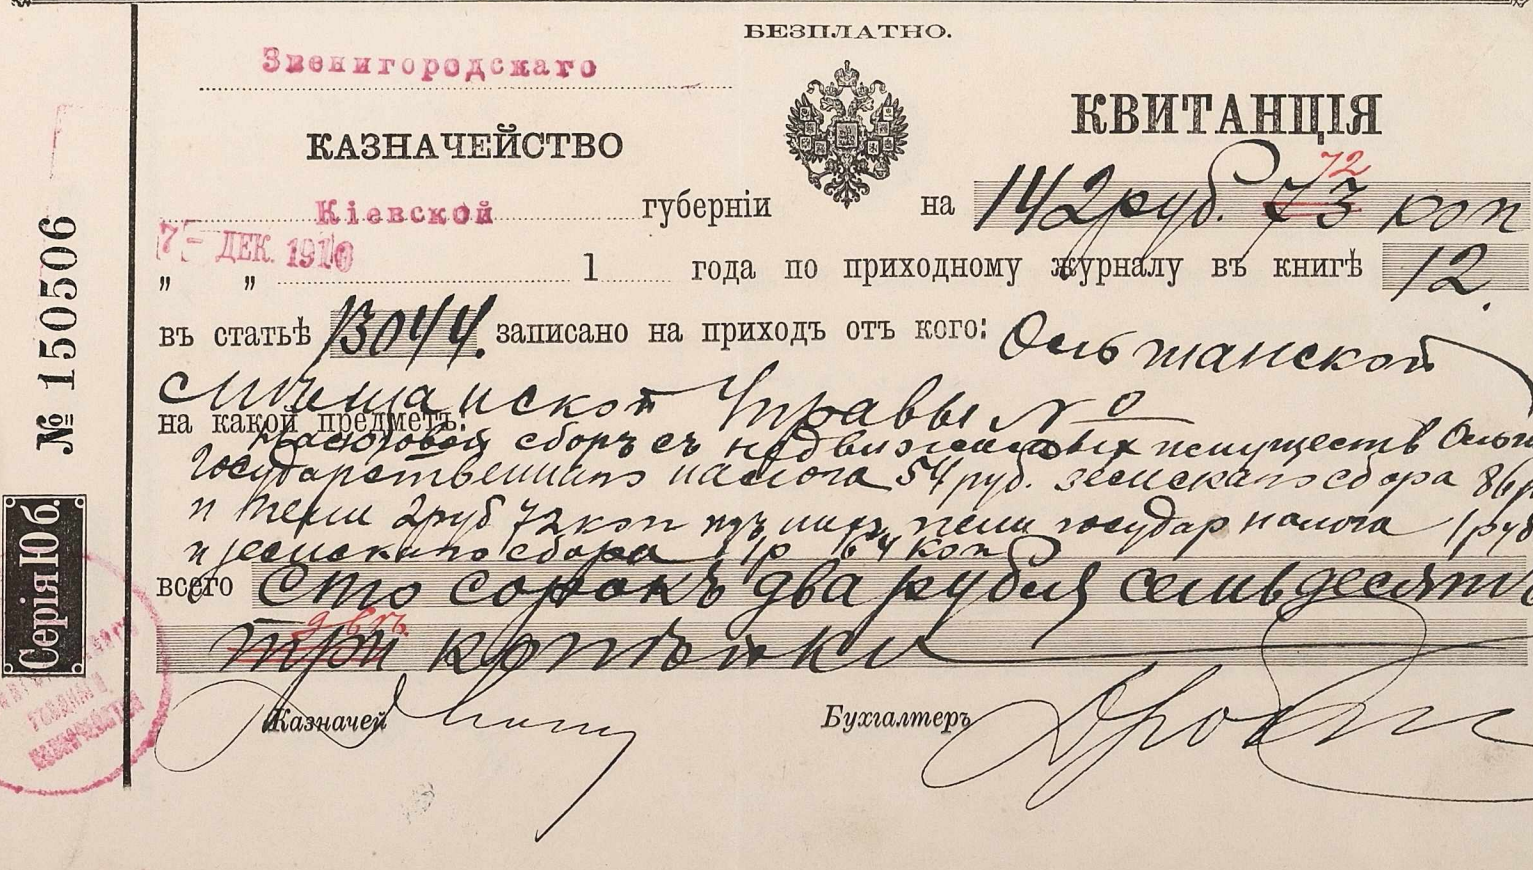 БЕЗПЛАТНО.
Звенигородскаго
КВИТАНЦІЯ
КАЗНАЧЕЙСТВО
72
Кіевской губерніи на 142 руб. 73 коп
7- ДЕК. 1910
„ „ 1 года по приходному журналу въ книгѣ 12.
въ статьѣ 13044. записано на приходъ отъ кого: Ольшанской
Мѣщанской Управы №
на какой предметъ:
сборъ съ недвижимыхъ имуществъ
Государственнаго налога 54 руб. земскаго сбора 86 р
и пени 2 руб 72 коп изъ нихъ пени государ налога 1 руб
и земскаго сбора 1 р 64 коп
всего сто сорокъ два рубля семьдесятъ
двѣ
три копѣйки
Казначей Бухгалтеръ
№ 150506
Серія Юб.